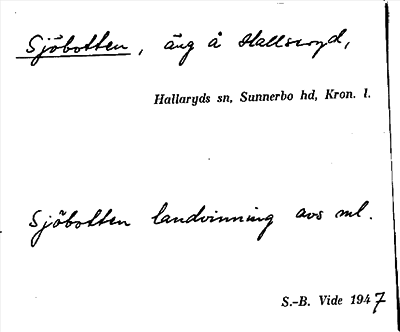 Sjöbotten, äng å Hallseryd,
Hallaryds sn, Sunnerbo hd, Kron. l.
Sjöbotten landvinning avs ml.
S.-B. Vide 1947